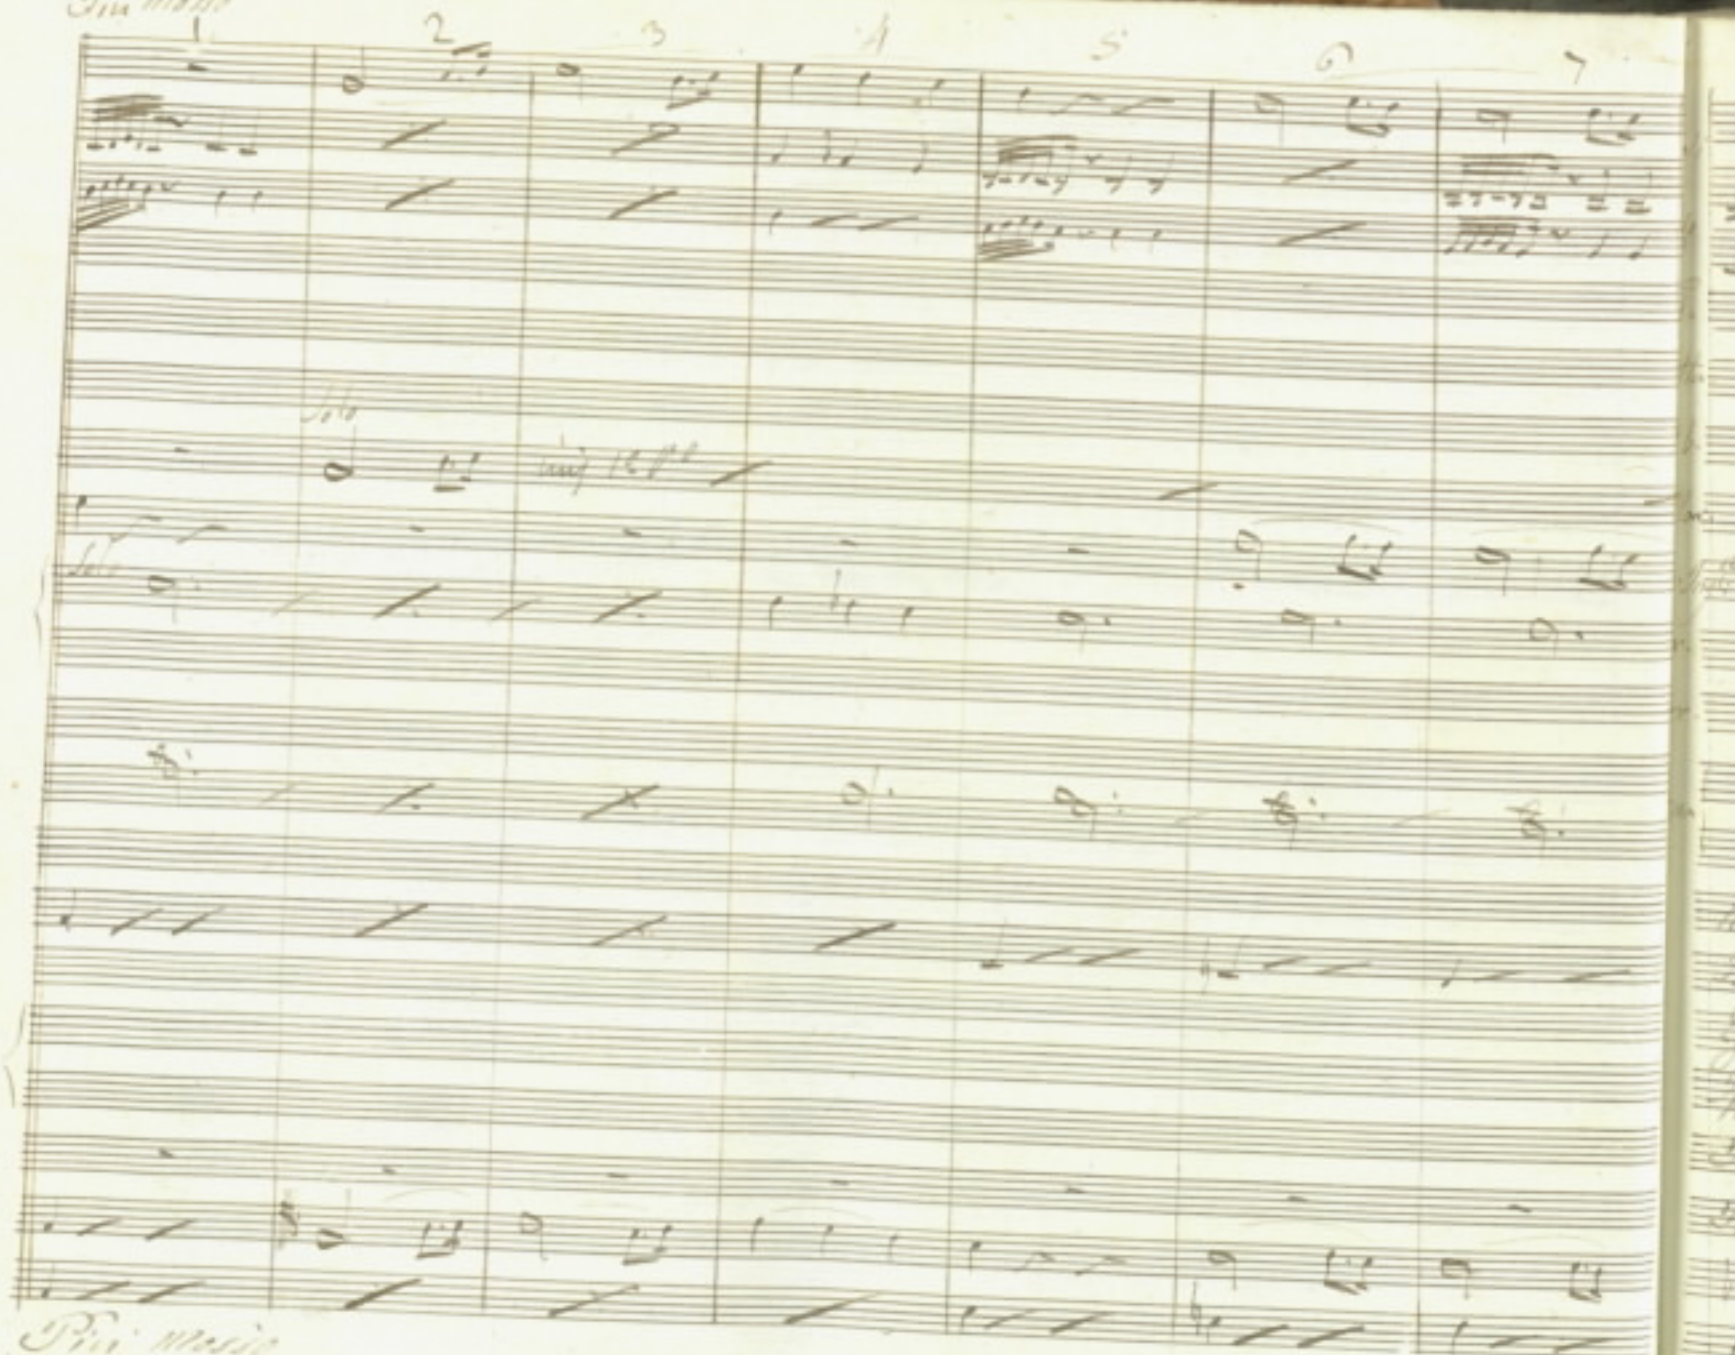 Piu mosso
1 2 3 4 5 6 7
Solo
Solo
Piu mosso